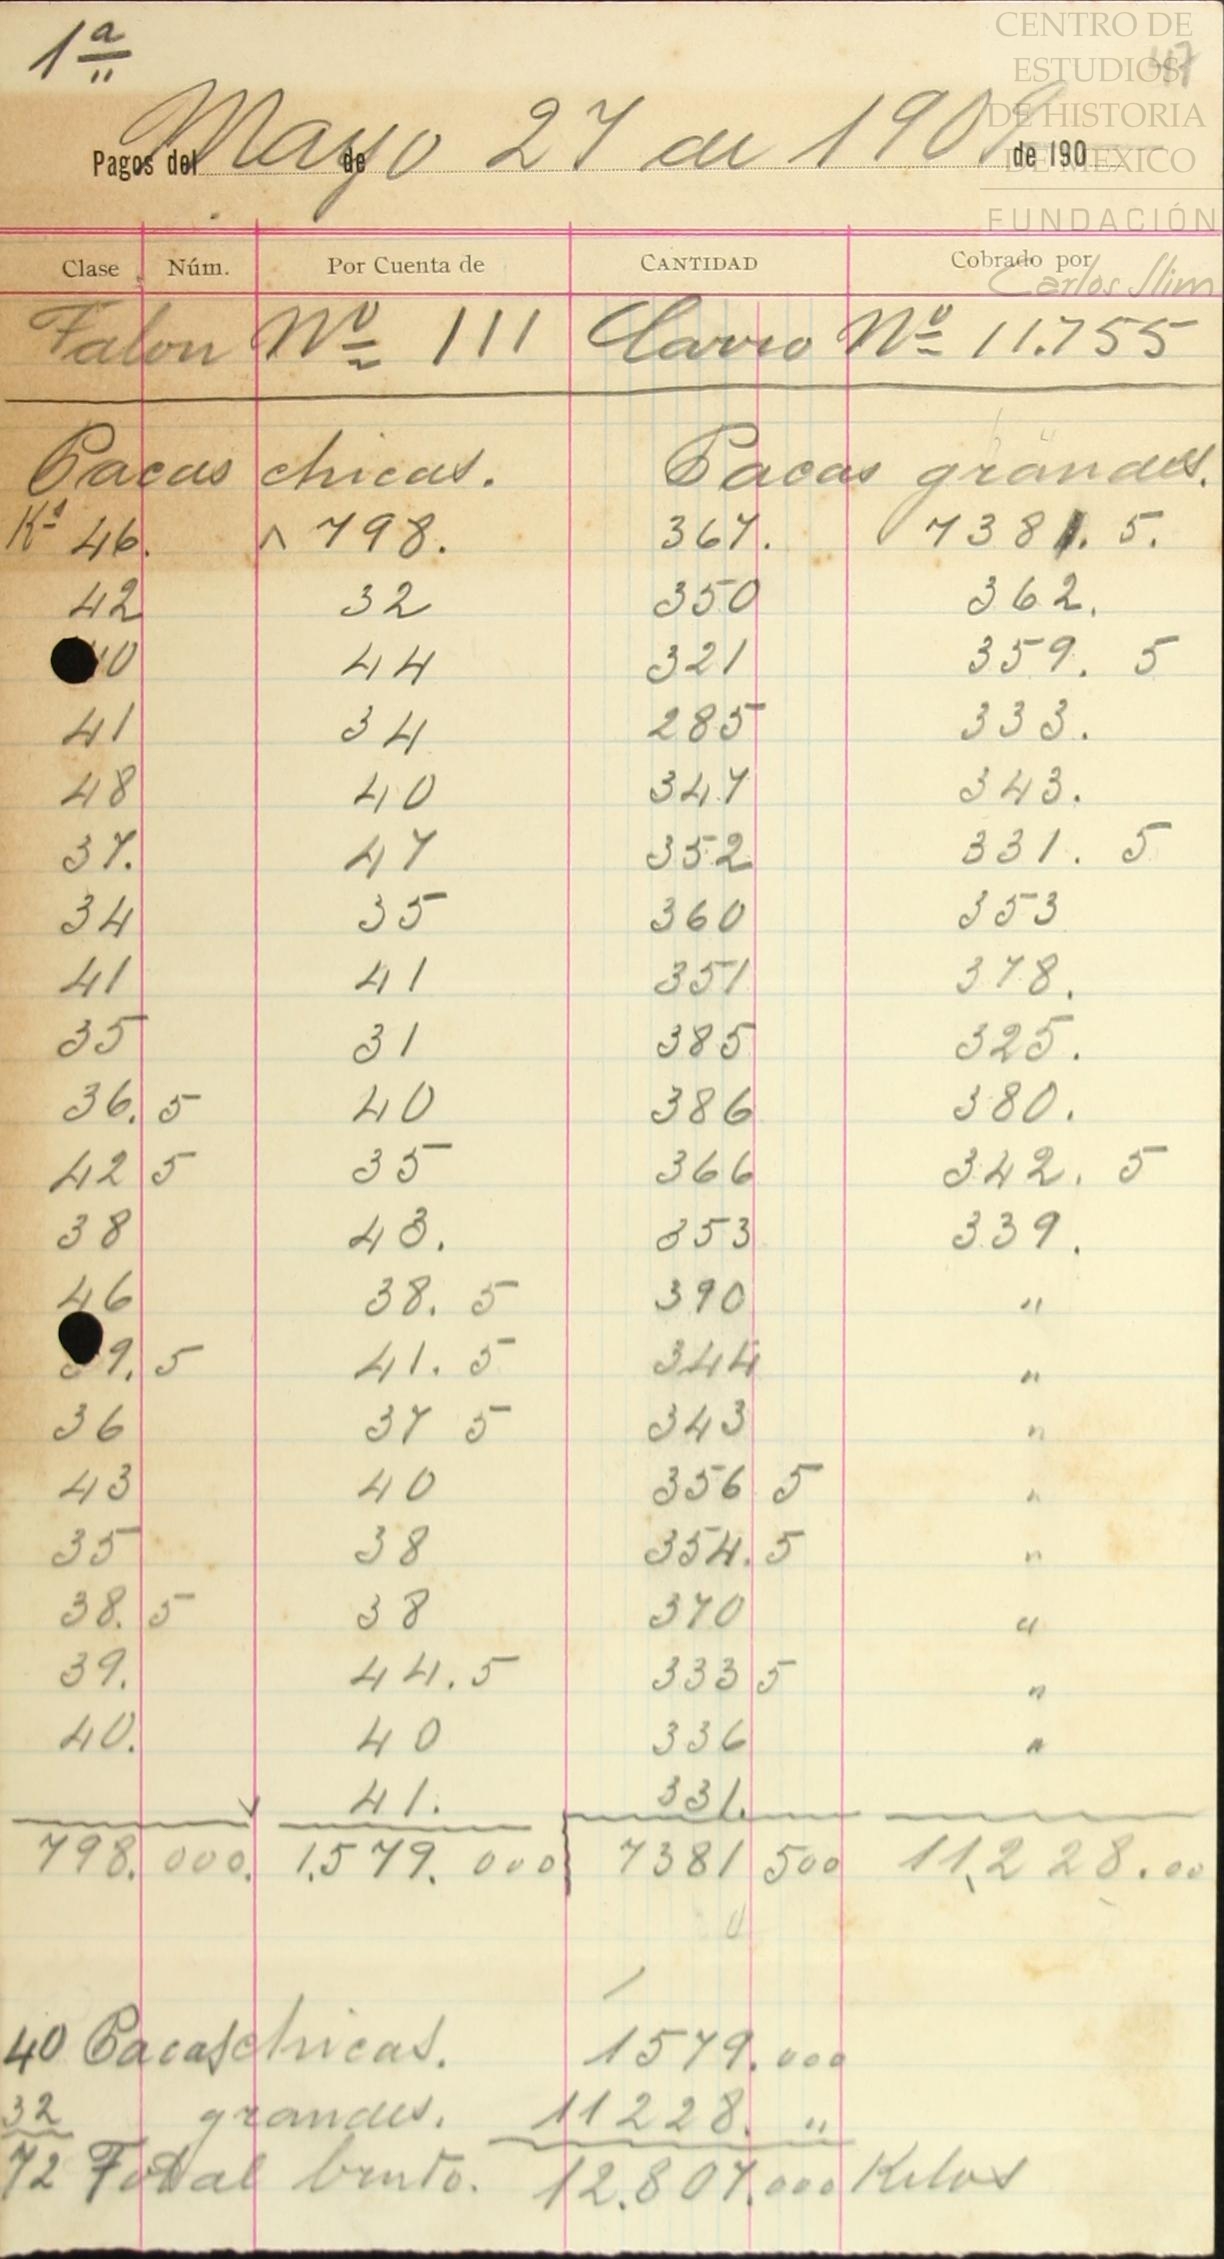 1ª
CENTRO DE
ESTUDIOS
DE HISTORIA
DE MEXICO
FUNDACIÓN
Carlos Slim
47
Mayo 27 de 1909
Pagos del de de 190
Clase Núm. Por Cuenta de CANTIDAD Cobrado por
Talon Nº 111 Carro Nº 11.755
Pacas chicas. Pacas grandes.
Ks 46. 798. 367. 7381. 5.
42 32 350 362.
40 44 321 359. 5
41 34 285 333.
48 40 347 343.
37. 47 352 331. 5
34 35 360 353
41 41 351 378.
35 31 385 325.
36. 5 40 386 380.
42 5 35 366 342. 5
38 43. 353 339.
46 38. 5 390 "
39. 5 41. 5 344 "
36 37 5 343 "
43 40 356 5 "
35 38 354. 5 "
38. 5 38 370 "
39. 44. 5 333 5 "
40. 40 336 "
41. 331.
798. 000. 1.579. 000 7381 500 11,228.00
40 Pacas chicas. 1579.000
32 grandes. 11228. "
72 Total bruto. 12.807.000 Kilos